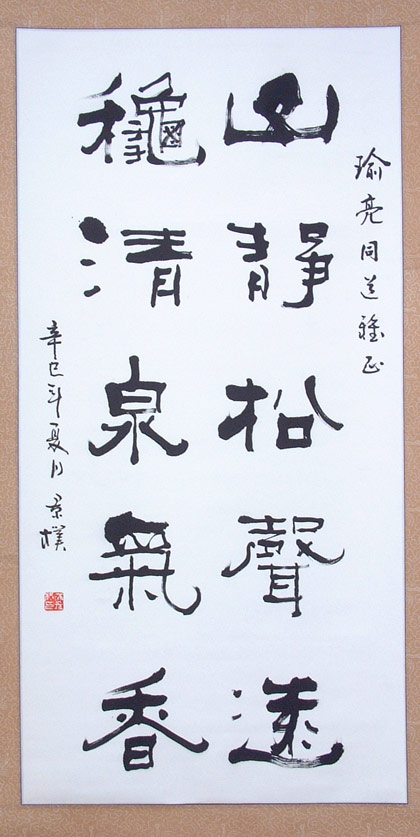 瑜亮同道雅正
山靜松聲遠
龝清泉氣香
辛巳年夏月景樸